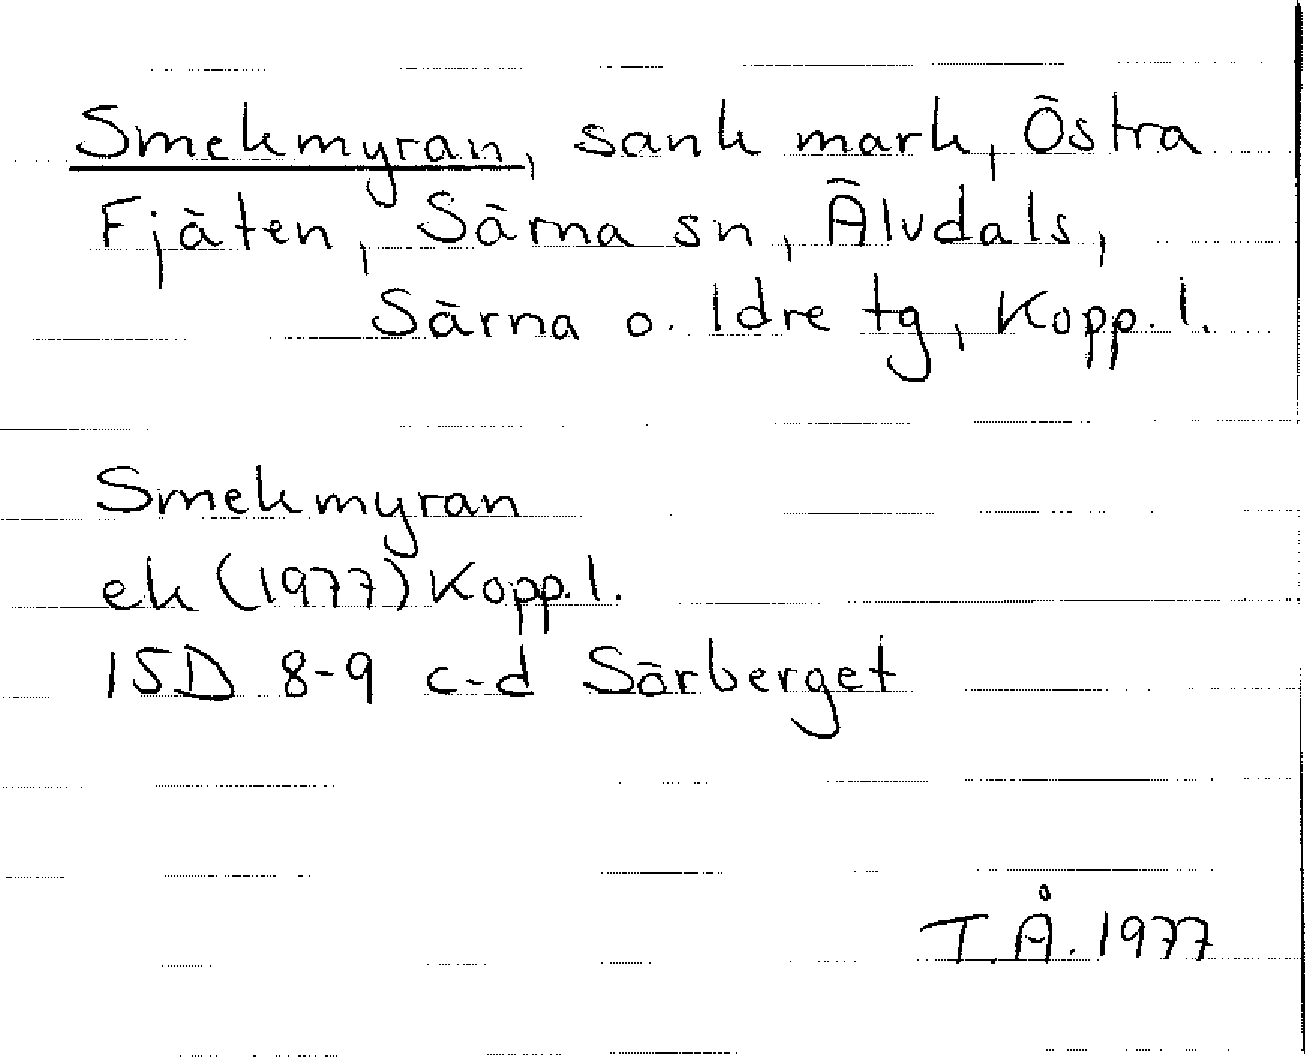 Smekmyran, sank mark, Östra
Fjäten, Särna sn, Älvdals,
Särna o. Idre tg, Kopp. l.
Smekmyran
ek (1977) Kopp. l.
15D 8-9 c-d Särberget
T.Å. 1977